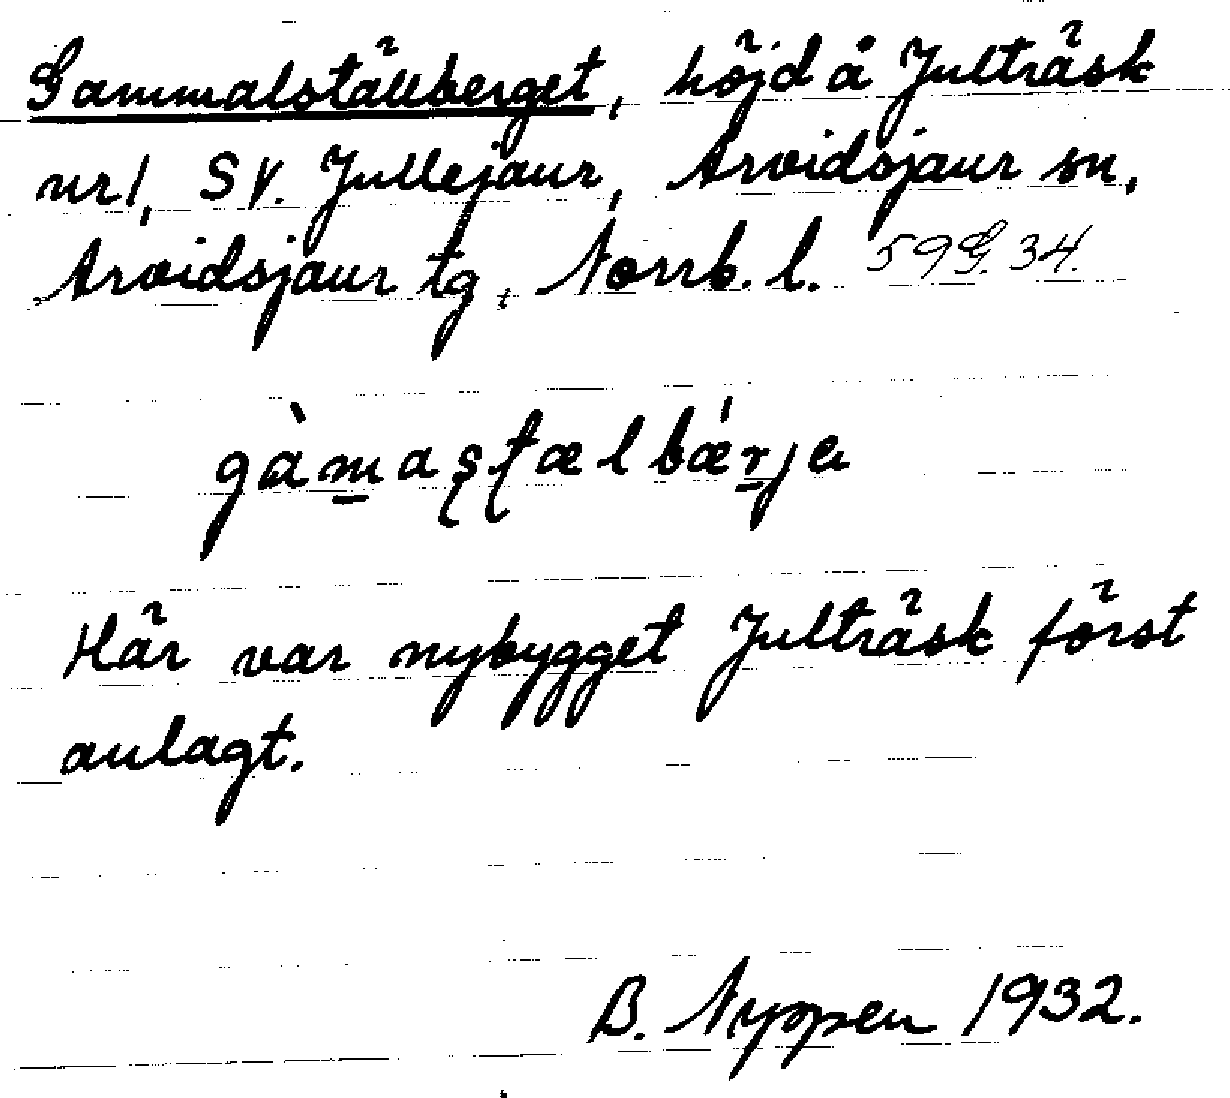 Gammalställberget, höjd å Julträsk
nr 1, SV. Jullejaur, Arvidsjaur sn,
Arvidsjaur tg, Norrb. l. 59G.34.
gàmaʂʈælbǽrjə
Här var nybygget Julträsk först
anlagt.
B. Nyppen 1932.